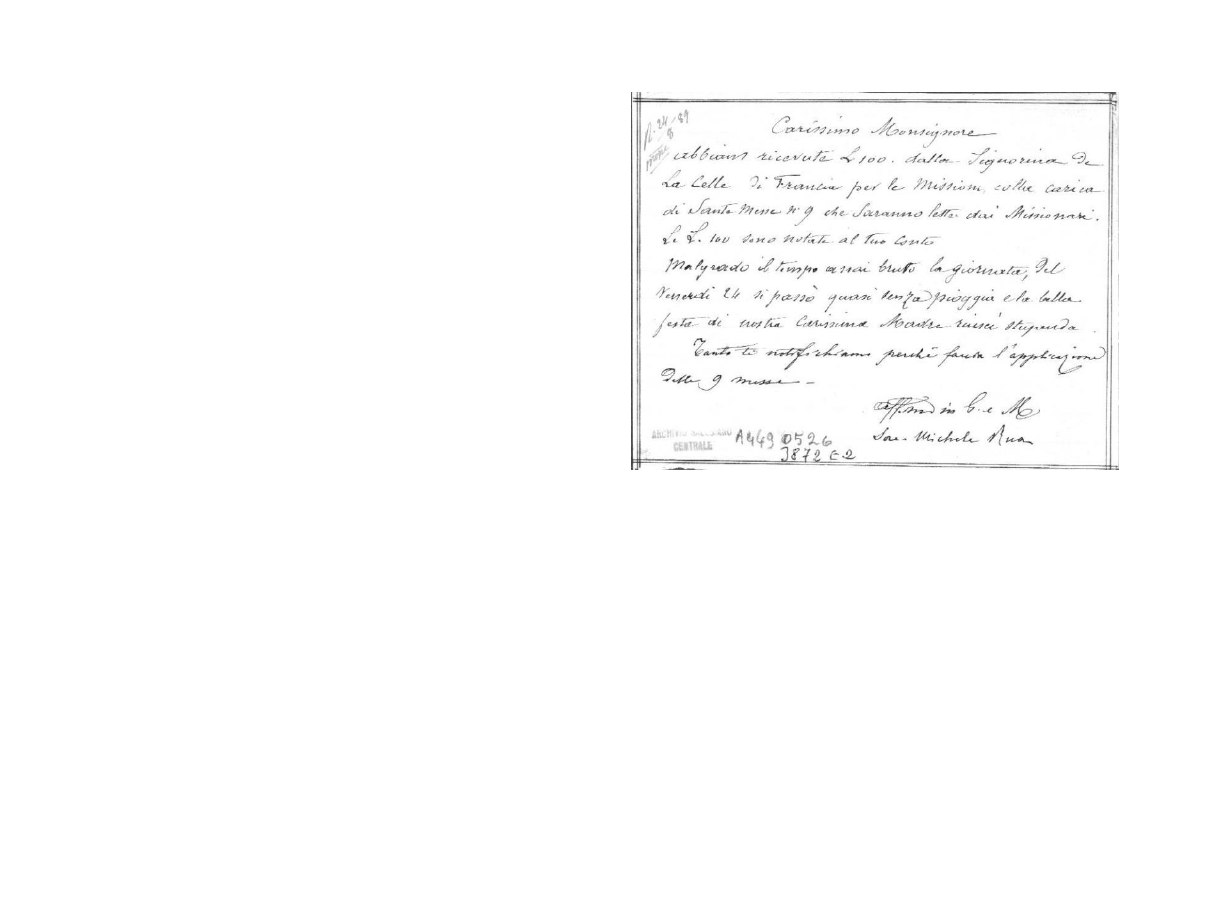 R. 24/8 89
Carissimo Monsignore
abbiamo ricevute L 100. dalla Signorina De
La Celle di Francia per le Missioni, colla carica
di Sante Messe N. 9 che saranno lette dai Missionari.
Le L. 100 sono notate al tuo conto
Malgrado il tempo assai brutto la giornata, del
Venerdì 24 si passò quasi senza pioggia e la bella
festa di nostra Carissima Madre riuscì stupenda.
Tanto ti notifichiamo perchè faccia l'applicazione
delle 9 messe –
Aff.mo in G. e M
Sac. Michele Rua
ARCHIVIO SALESIANO
CENTRALE
A449 0526
3872 E 2